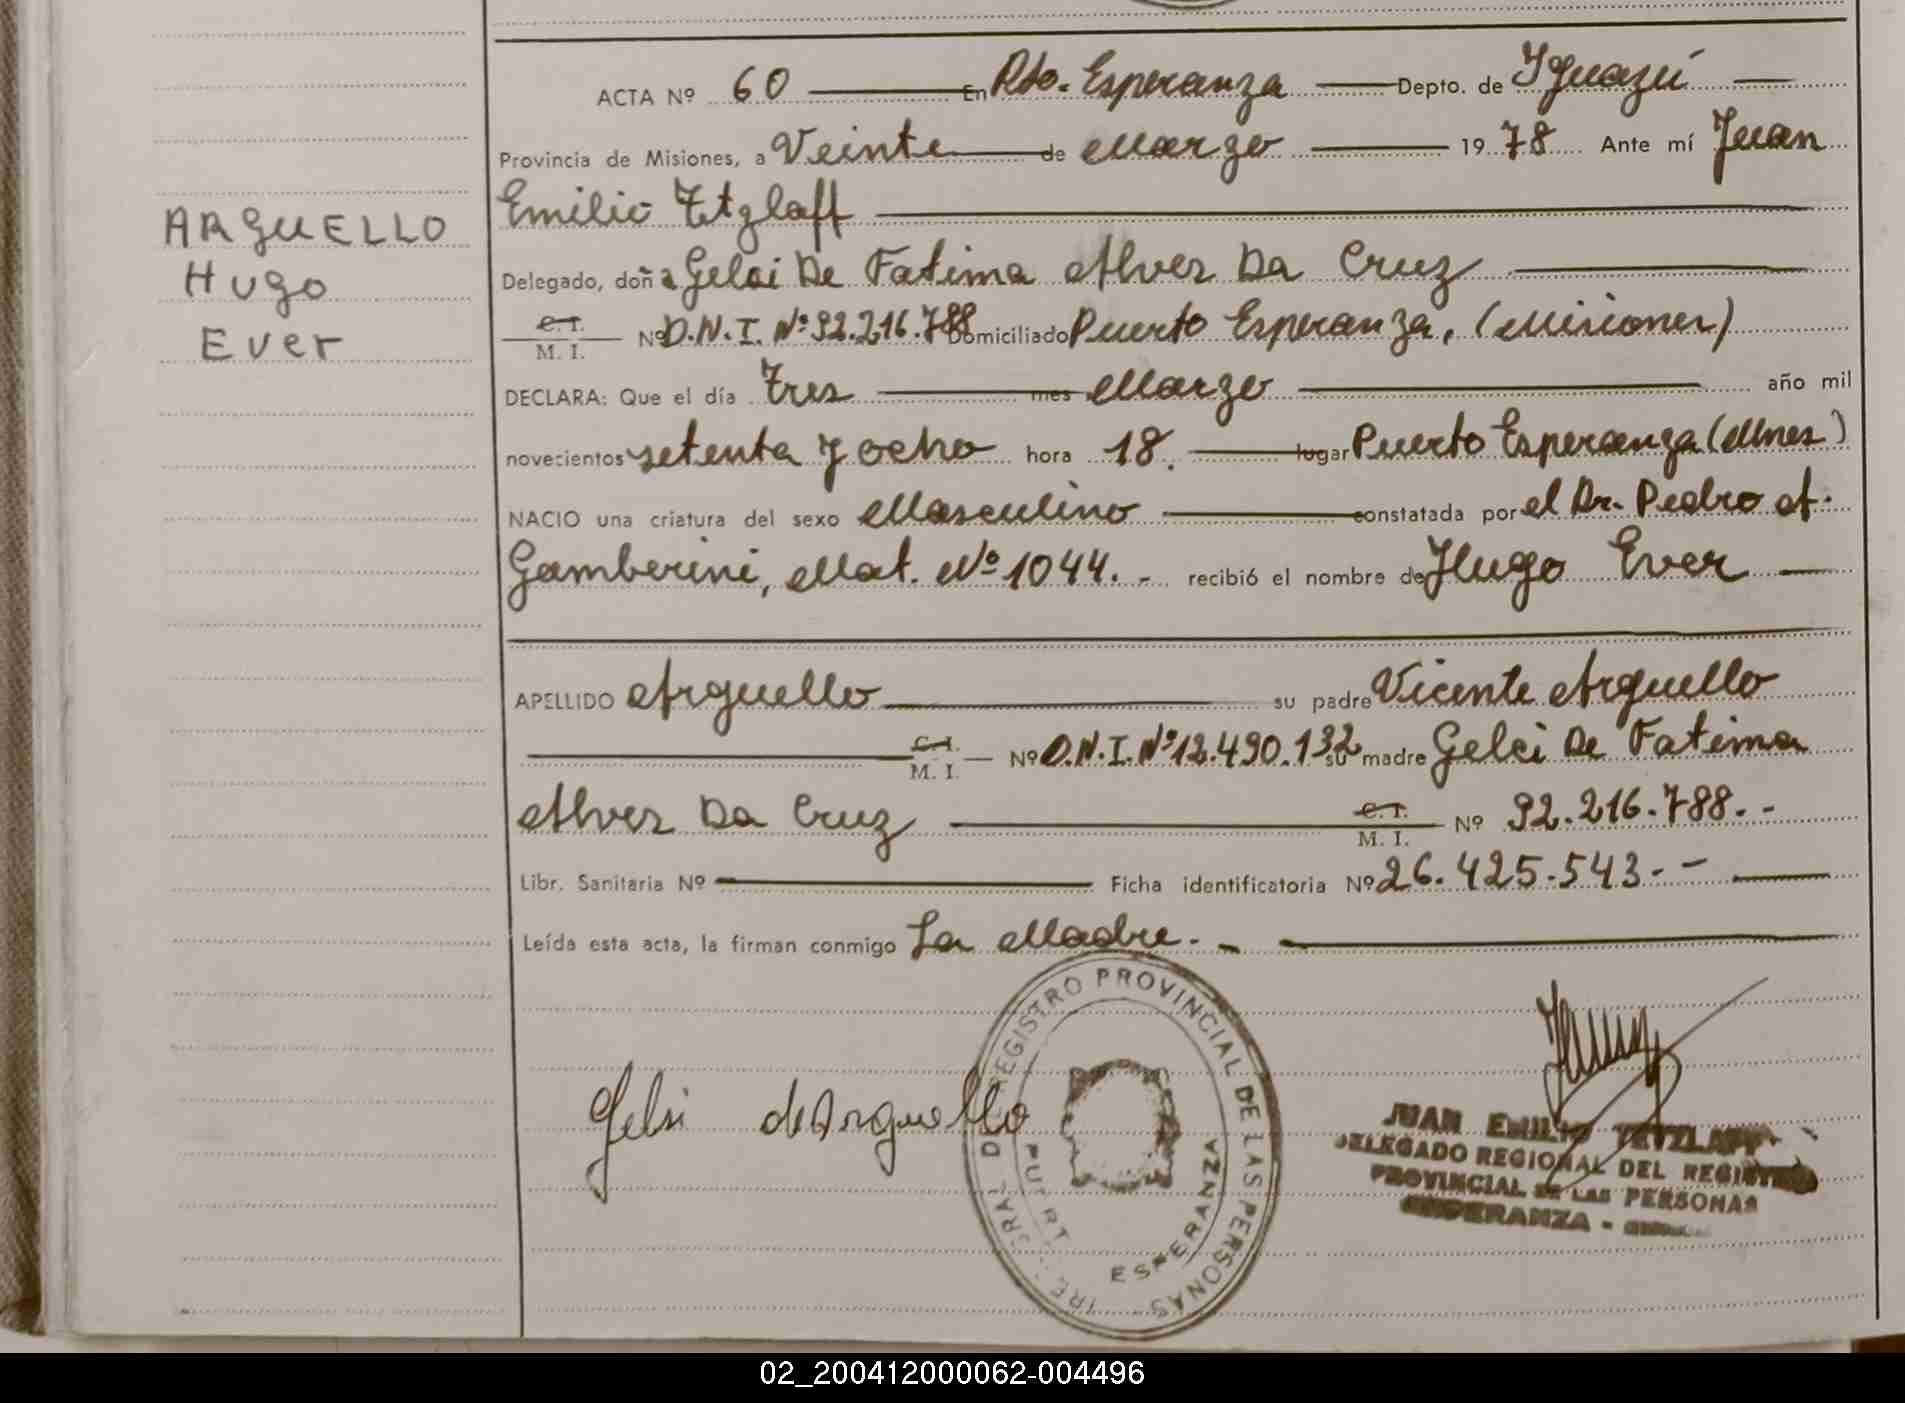 ACTA Nº 60 En Pto. Esperanza Depto. de Iguazú
Provincia de Misiones, a Veinte de Marzo 1978 Ante mí Juan
Emilio Tetzlaff
ARGUELLO
Hugo
Ever
Delegado, doña Gelci De Fatima Alves Da Cruz
C. I.
M. I. Nº D.N.I. Nº 92.216.788 Domiciliado Puerto Esperanza, (Misiones)
DECLARA: Que el día tres mes Marzo año mil
novecientos setenta y ocho hora 18. lugar Puerto Esperanza (Mnes)
NACIO una criatura del sexo Masculino constatada por el Dr. Pedro A.
Gamberini, Mat. Nº 1044. - recibió el nombre de Hugo Ever
APELLIDO Arguello su padre Vicente Arguello
C. I.
M. I. Nº D.N.I. Nº 12.490.132 su madre Gelci De Fatima
Alves Da Cruz C. I.
M. I. Nº 92.216.788. -
Libr. Sanitaria Nº Ficha identificatoria Nº 26.425.543. -
Leída esta acta, la firman conmigo La Madre. -
REGISTRO PROVINCIAL DE LAS PERSONAS
ESPERANZA
Gelsi de Arguello
JUAN EMILIO TETZLAFF
DELEGADO REGIONAL DEL REGISTRO
PROVINCIAL DE LAS PERSONAS
ESPERANZA -
02_200412000062-004496